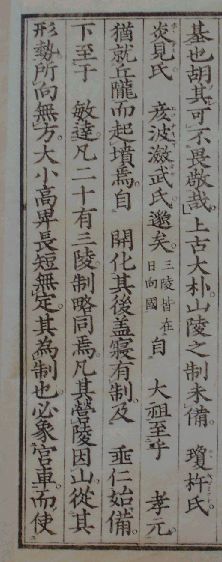 基也胡其可不畏敬哉上古大朴山陵之制未備 瓊杵氏
炎見氏 彦波瀲武氏邈矣三陵皆在日向國自 大祖至乎 孝元
猶就丘隴而起墳焉自 開化其後盖寖有制及 垂仁始備
下至于 敏達凡二十有三陵制略同焉凡其營陵因山從其
形勢所向無方大小高卑長短無定其為制也必象宮車而使